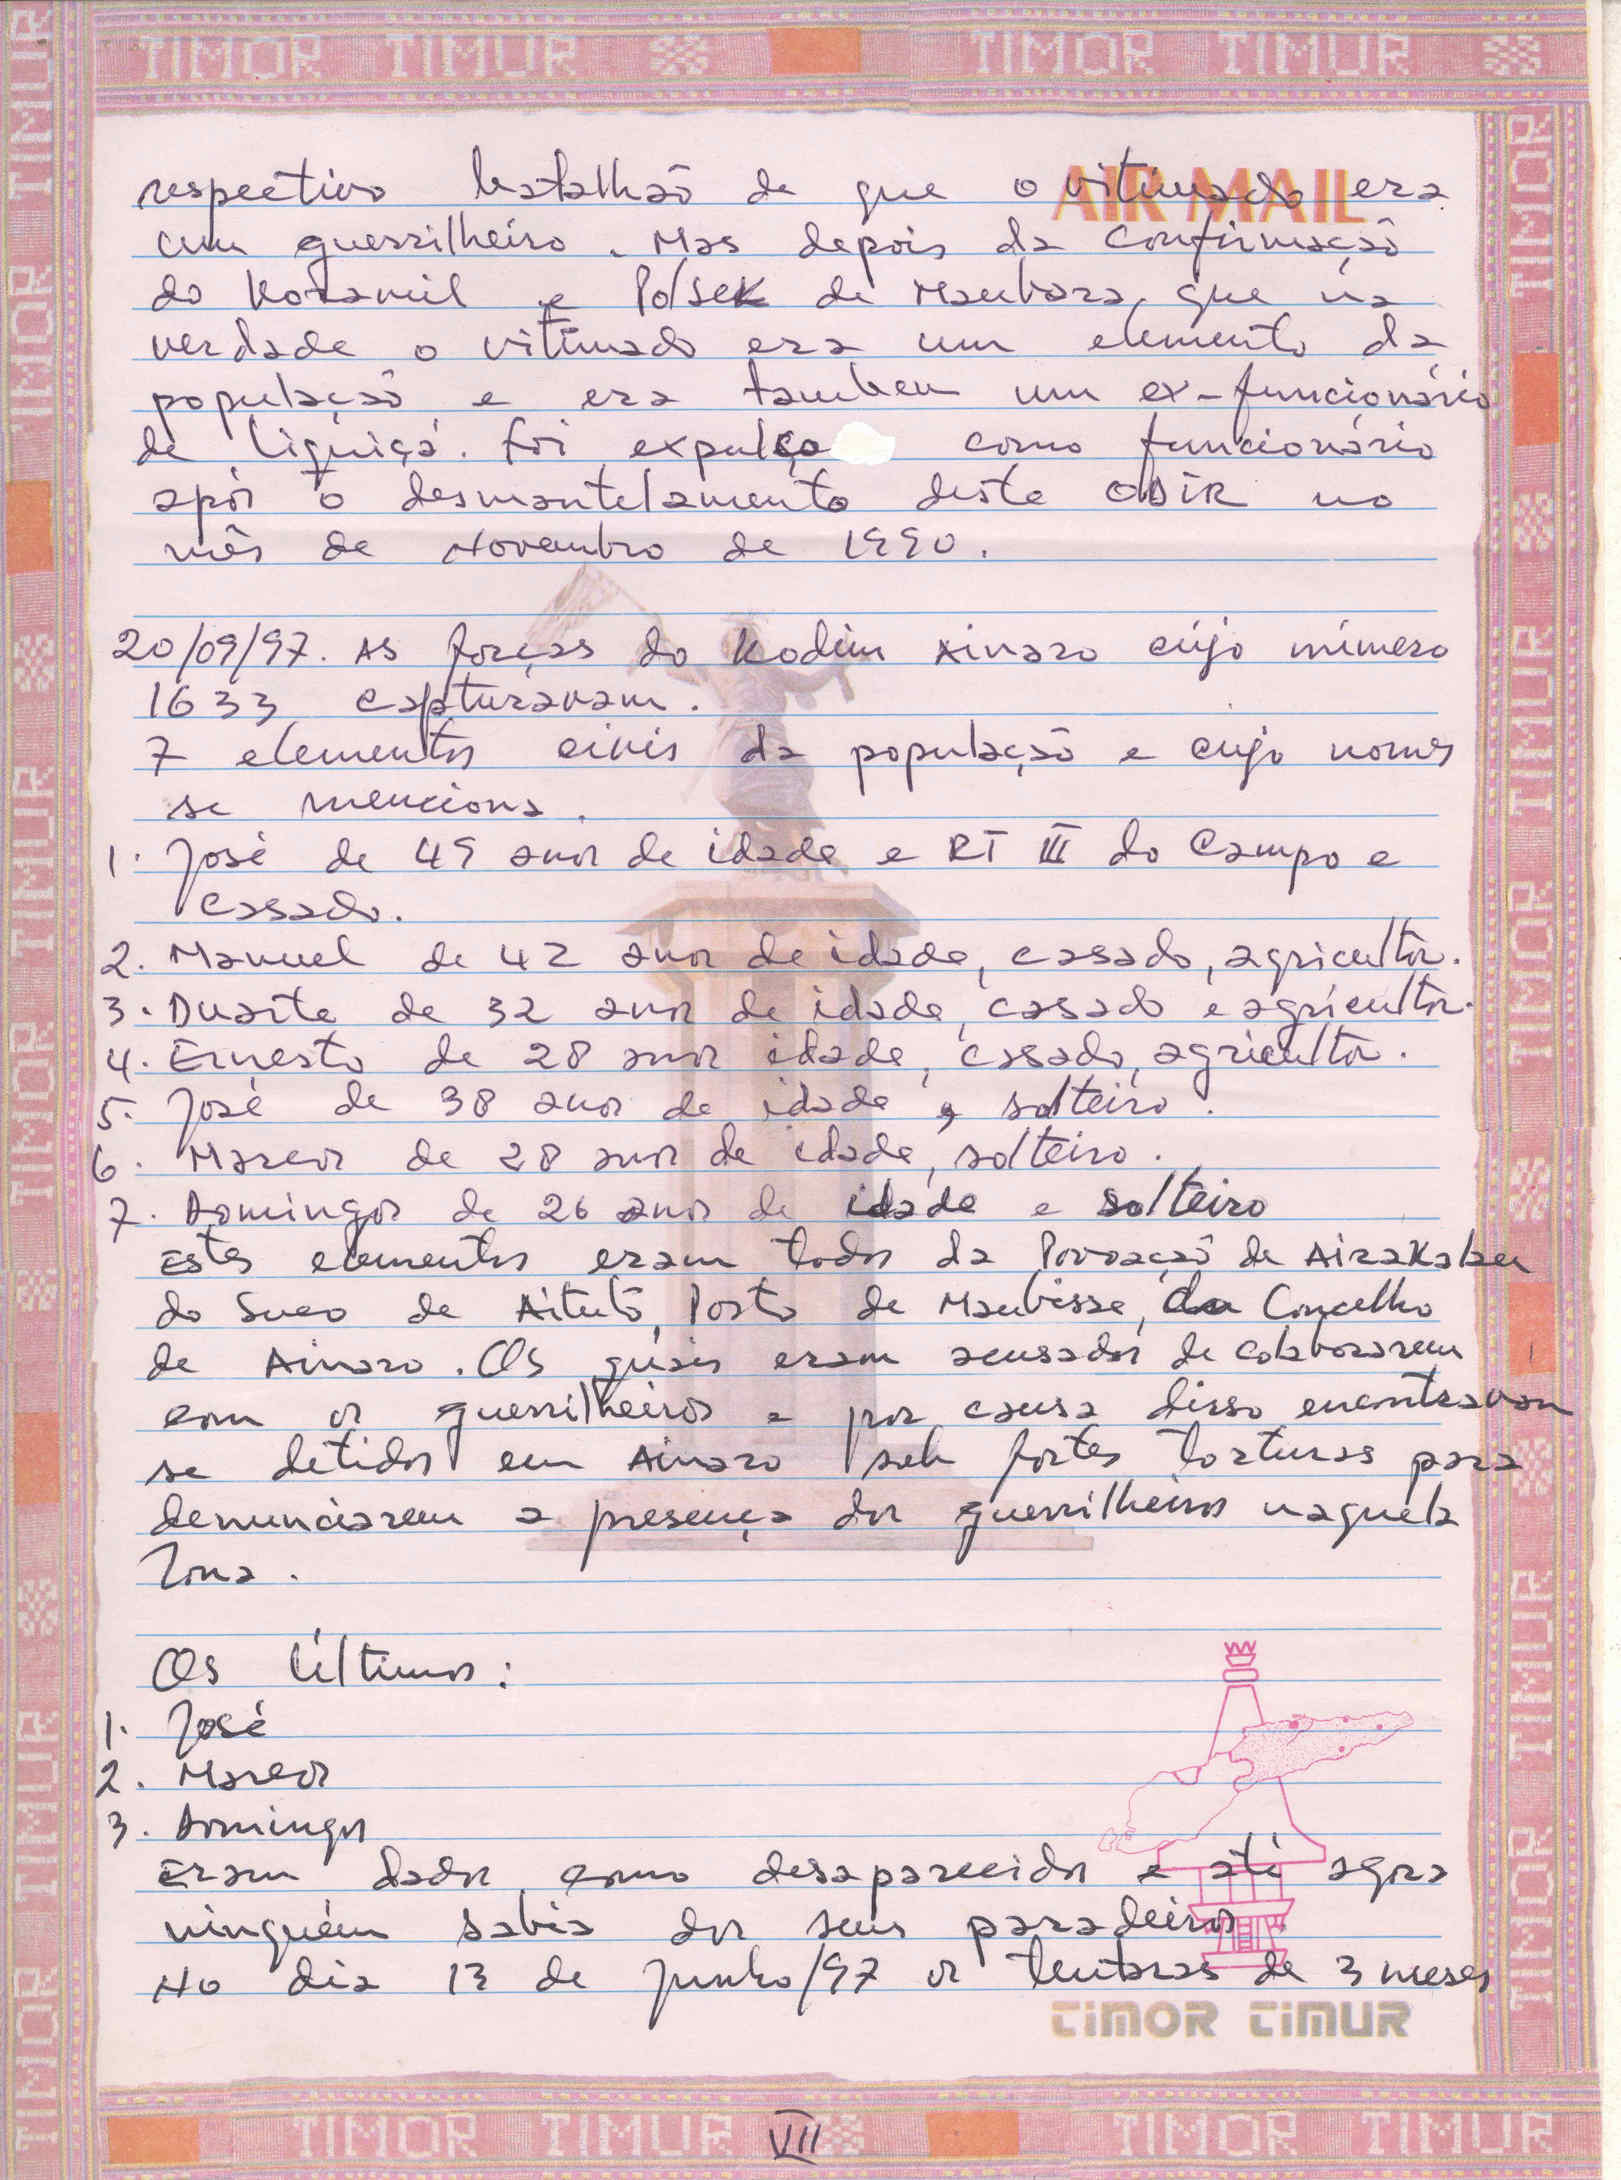 TIMOR TIMUR TIMOR TIMUR
AIR MAIL
respectivo batalhaõ de que o vitimado era
um guerrilheiro. Mas depois da confirmaçaõ
do Koramil e Polsek de Maubara, que na
verdade o vitimado era um elemento da
populaçaõ e era tambem um ex-funcionário
de Liquiçá. Foi expulso como funcionário
após o desmantelamento deste ODIR no
mês de Novembro de 1990.
20/09/97. As forças do Kodim Ainaro cujo número
1633 capturavam.
7 elementos civis da populaçaõ e cujo nomes
se menciona.
1. José de 49 anos de idade e RT III do Campo e
casado.
2. Manuel de 42 anos de idade, casado, agricultor.
3. Duarte de 32 anos de idade, casado e agricultor.
4. Ernesto de 28 anos idade, casado, agricultor.
5. José de 38 anos de idade, solteiro.
6. Marcos de 28 anos de idade, solteiro.
7. Domingos de 26 anos de idade e solteiro
Estes elementos eram todos da Povoaçaõ de Airakaben
do Suco de Aituto, Posto de Maubisse, da Concelho
de Ainaro. Os quais eram acusados de colaborarem
com os guerrilheiros e por causa disso encontravam
se detidos em Ainaro sob fortes torturas para
denunciarem a presença dos guerrilheiros naquela
Zona.
Os últimos:
1. José
2. Marcos
3. Domingos
Eram dados como desaparecidos e até agora
ninguém sabia dos seus paradeiros
No dia 13 de Junho/97 os tentaras de 3 meses
TIMOR TIMUR
TIMOR TIMUR TIMOR TIMUR
VII